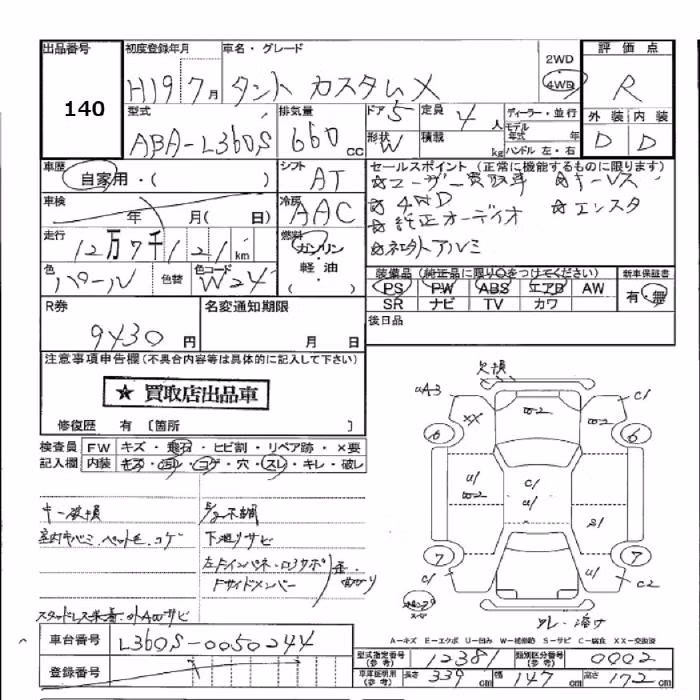 出品番号
140
初度登録年月
H19 7月
車名・グレード
タント カスタムX
2WD
4WD
評価点
R
型式
ABA-L360S
排気量
660 cc
ドア 5
定員 4人
形状 W
積載 kg
ディーラー・並行
モデル年式 年
ハンドル 左・右
外装 内装
D D
車歴
自家用・( )
シフト
AT
セールスポイント (正常に機能するものに限ります)
☆ユーザー買取車 ☆キーレス
☆4WD ☆エンスタ
☆純正オーディオ
☆社外アルミ
車検
年 月( 日)
冷房
AAC
走行
12万7千121km
燃料
ガソリン・軽油・( )
色
パール
色替
色コード
W24
装備品 (純正品に限り○をつけてください)
PS PW ABS エアB AW
SR ナビ TV カワ
新車保証書
有・無
R券
9430円
名変通知期限
月 日
後日品
注意事項申告欄(不具合内容等は具体的に記入して下さい)
★ 買取店出品車
修復歴 有〔箇所 〕
検査員記入欄
FW キズ・飛石・ヒビ割・リペア跡・×要
内装 キズ・汚レ・コゲ・穴・スレ・キレ・破レ
キー破損
室内キバミ・ペット毛・コゲ
下廻リサビ
左Fインパネ・ロアサポ
Fサイドメンバー
歪・曲がり
スタッドレス装着・外AWサビ
欠損
UA3
XX
C1
W2
W2
6
6
U1
W2
C1
U1
S1
7
7
C1
U1
C2
スレ・溶け
A-キズ E-エクボ U-凹み W-補修跡 S-サビ C-腐食 XX-交換済
車台番号
L360S-0050244
登録番号
型式指定番号(参考)
12381
類別区分番号(参考)
0002
車庫証明用(参考)
長さ 339cm 幅 147cm 高さ 172cm